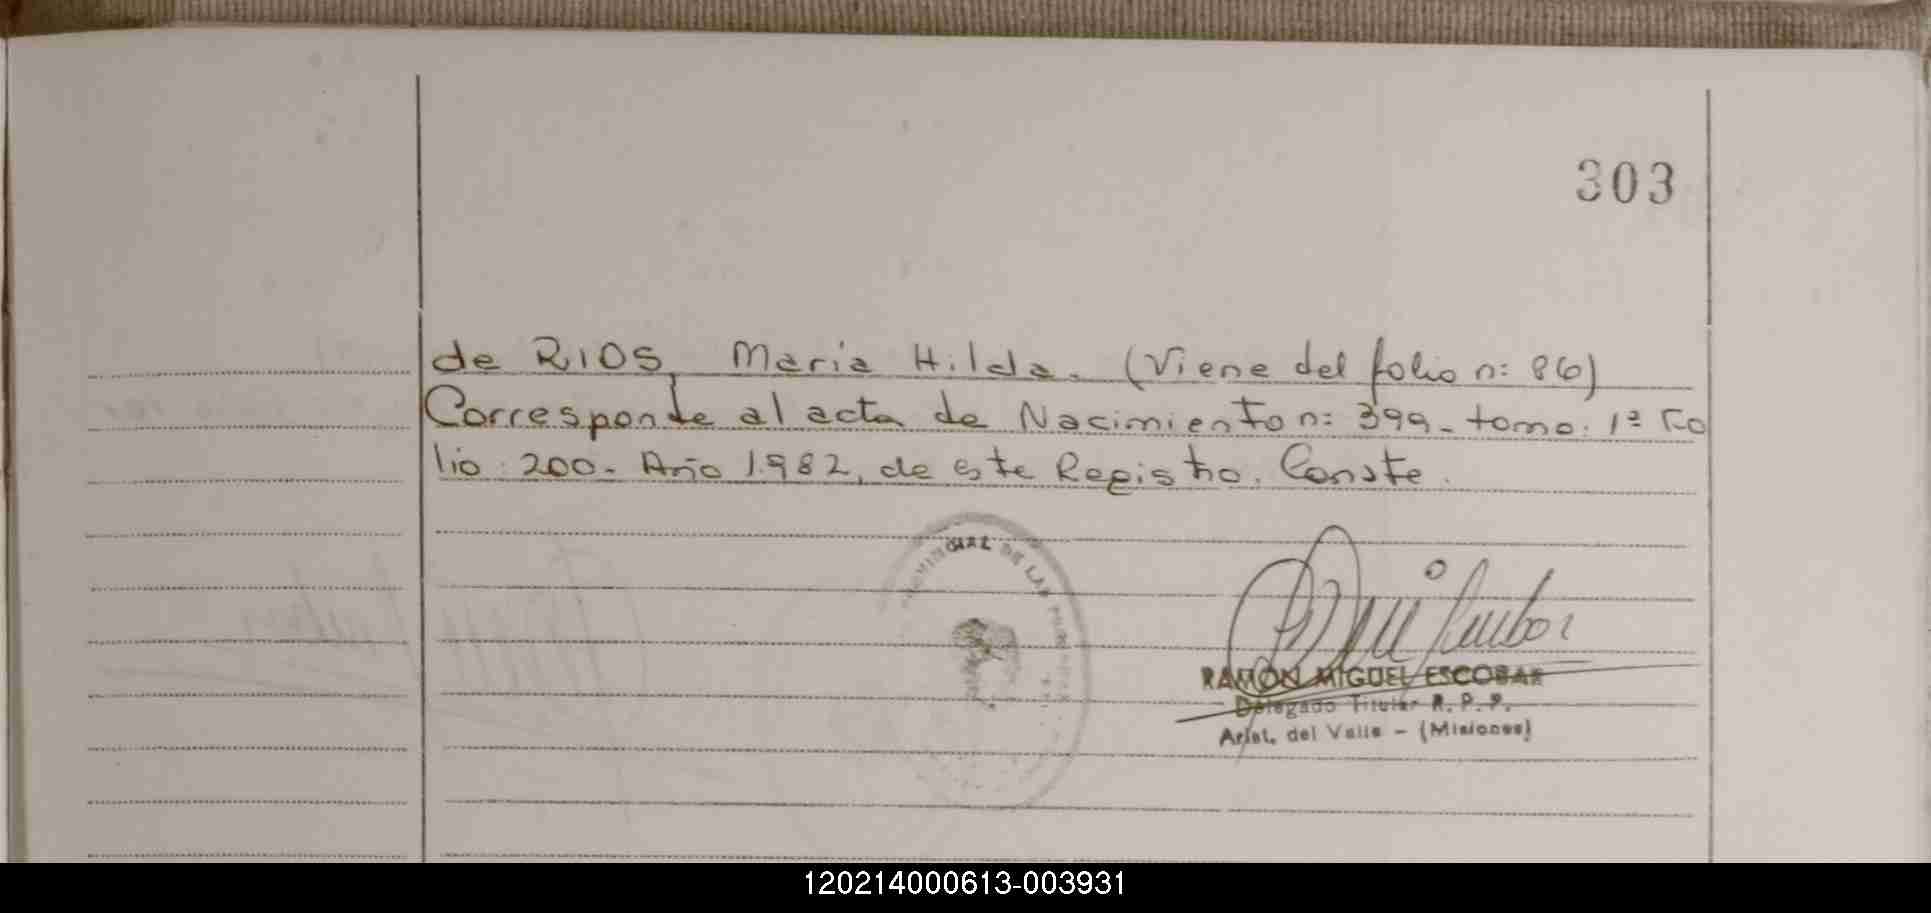 303
de RIOS, Maria Hilda. (Viene del folio n: 86)
Corresponde al acta de Nacimiento n: 399 - tomo: 1º Fo
lio: 200 - Año 1.982, de este Registro. Conste.
VINCIAL DE LAS
RAMON MIGUEL ESCOBAR
Delegado Titular R. P. P.
Arist. del Valle - (Misiones)
120214000613-003931